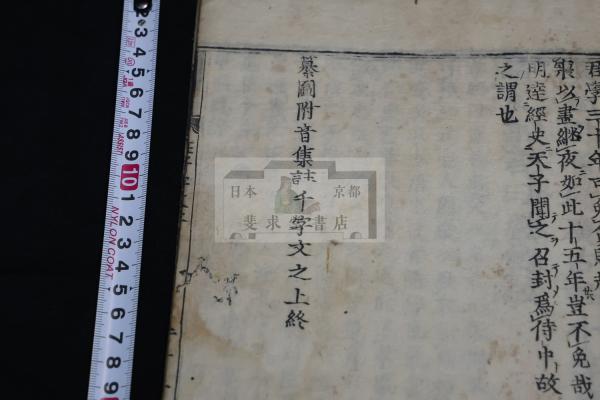 聚以晝繼夜如此十五年豈不免哉
明達經史天子聞之召封爲待中故
之謂也
纂圖附音集註千字文之上終
日本 京都
斐求 書店
2 3 4 5 6 7 8 9 10 1 2 3 4 5 6 7 8 9
NYLON COAT